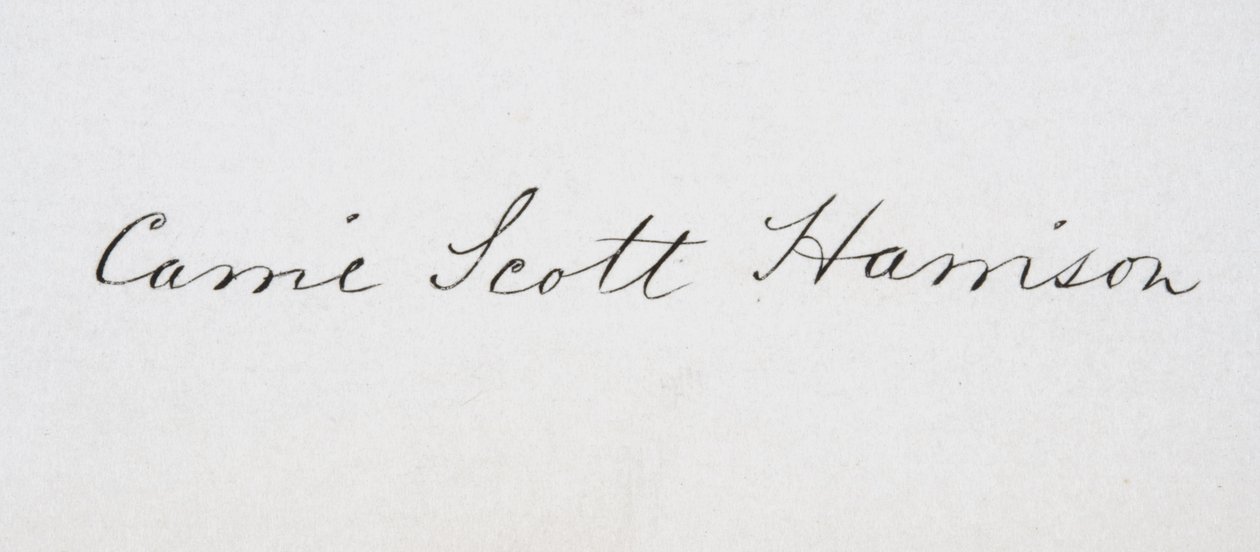 Carrie Scott Harrison